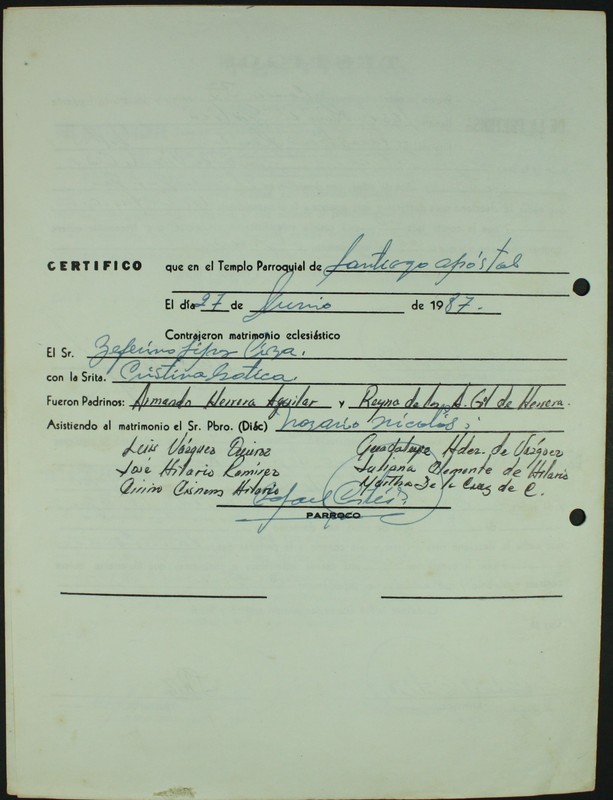 CERTIFICO que en el Templo Parroquial de Santiago apóstol
El día 27 de Junio de 1987.
Contrajeron matrimonio eclesiástico
El Sr. Zeferino
con la Srita. Cristina Gatica
Fueron Padrinos: Armando Herrera Aguilar y Reyna de los A. Gil de Herrera.
Asistiendo al matrimonio el Sr. Pbro. (Diác) Rosario Nicolás
Luis Vázquez Guadalupe Hdez. de Vázquez
José Hilario Ramírez Juliana Clemente de Hilario
Cirino Cisneros Hilario Martha De la Cruz de C.
Rafael Cortés
PARROCO